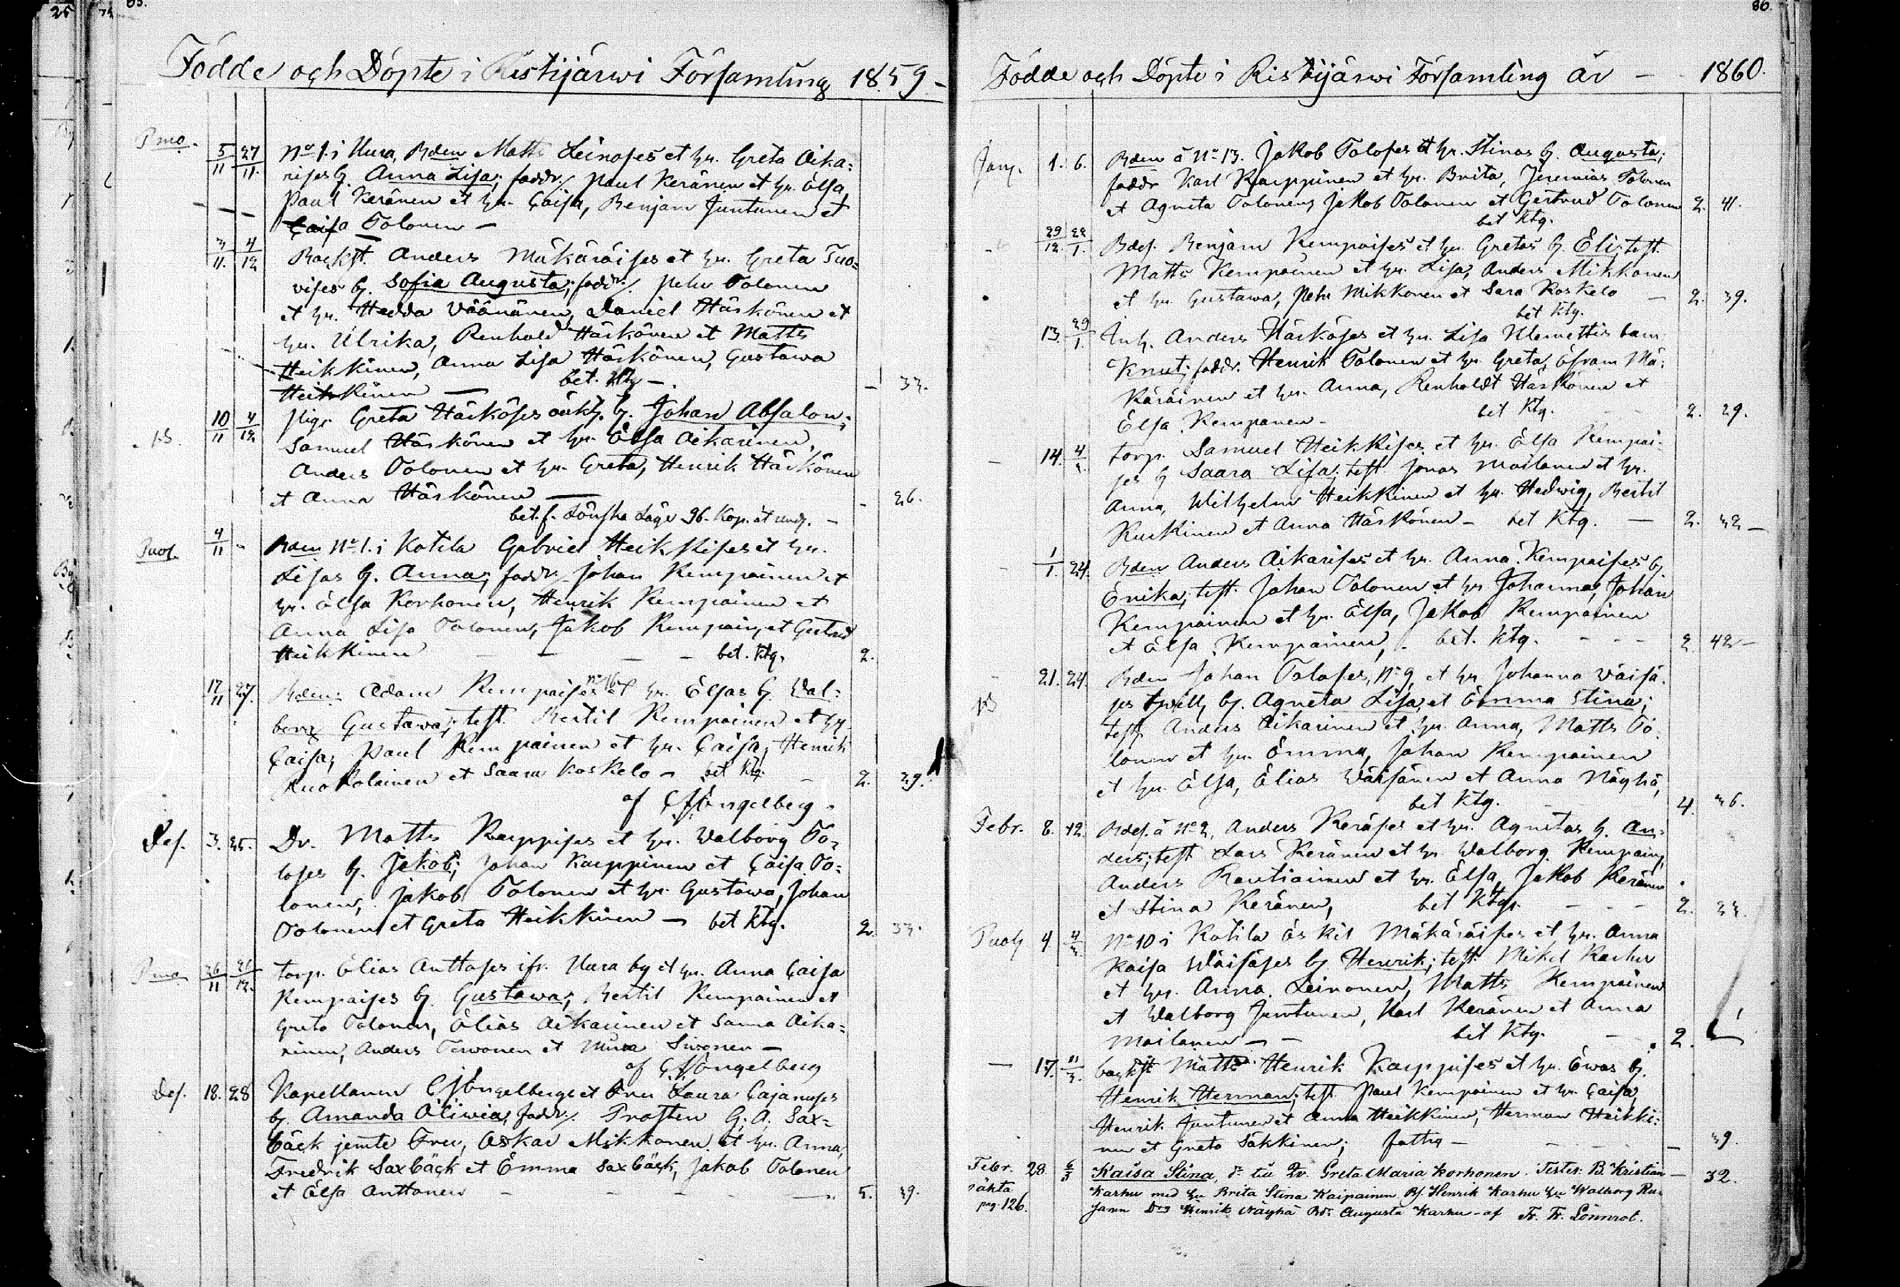 25
85.
Födde och Döpte i Ristijärwi Församling 1859 -
5/11 27/11 No 1. i Uura, Bden Matts Leinoses et hu. Greta Aika:
rises b. Anna Lisa; faddr/ Paul Keränen et hu. Elsa,
Paul Keränen et hu. Caisa, Benjam Juntunen et
Caisa Tolonen -
3/11 4/12 Backst. Anders Mäkäräises et hu. Greta Tuo-
vises b. Sofia Augusta; faddr/ Pehr Tolonen
et hu. Hedda Väänänen, Daniel Härkönen et
hu. Ulrika, Renhold Härkönen et Matts
Heikkinen, Anna Lisa Härkönen, Gustawa
Heikkinen — bet. Ktg -. - 33.
10/11 4/12 Pig. Greta Härköses oäkt. b. Johan Absalon;
Samuel Härkönen et hu. Elsa Aikarinen,
Anders Tolonen et hu. Greta, Henrik Härkönen
et Anna Härkönen — - 26.
bet. f. Lönska Läge 96. Kop. åt ung. -
4/11 - Bden No 1. i Kotila Gabriel Heikkises et hu.
Lisas b. Anna; faddr/ Johan Kempainen et
hu. Elsa Korhonen, Henrik Kempainen et
Anna Lisa Tolonen, Jakob Kempain, et Gertrud
Heikkinen — — — bet. Ktg. 2.
17/11 27. Bden: Adam Kempaises No 16 et hu. Elsas b. Wal:
borg Gustawa; test. Bertil Kempainen et hu.
Caisa; Paul Kempainen et hu. Caisa; Henrik
Ruokolainen et Saara Koskelo - bet Ktg. - 2. 29.
af CJEngelberg.
Des. 3. 25. Dr. Matts Karppises et hu. Walborg To-
loses b. Jakob; Johan Karppinen et Caisa To-
lonen, Jakob Tolonen et hu. Gustawa, Johan
Tolonen et Greta Heikkinen — bet Ktg. 2. 33.
Torp. Elias Anttoses ifr. Uura by et hu. Anna Caisa
Kempaises b. Gustawa; Bertil Kempainen et
Greta Tolonen, Elias Aikarinen et Sanna Aika-
rinen, Anders Terwonen et Sironen —
af CJEngelberg
Des. 18. 28 Kapellanen CJEngelbergs et Fru Laura Cajanuses
b. Amanda Oliwia, faddr/ Prosten G. A. Sax-
bäck jemte Fru, Oskar Mikkonen et hu. Anna,
Fredrik Saxbäck et Emma Saxbäck, Jakob Tolonen
et Elsa Anttonen — — — 5. 29.
86.
Födde och Döpte i Ristijärwi Församling år — 1860.
Jan. 1. 6. Bden å No 13. Jakob Toloses et hu. Stinas b. Augusta;
faddr Karl Karppinen et hu. Brita, Jeremias Tolonen
et Agneta Tolonen, Jakob Tolonen et Gertrud Tolonen 2. 41.
bet Ktg.
29/12 22/1. Bdes. Benjam Kempaises et hu. Gretas b. Eli; test.
Matts Kempainen et hu. Lisa, Anders Mikkonen
et hu. Gustawa, Pehr Mikkonen et Sara Koskelo — 2. 39.
bet Ktg.
13. 29/1. Inh. Anders Härköses et hu. Lisa Klemettis barn
Knut; faddr. Henrik Tolonen et hu. Greta, Efraim Mä-
käräinen et hu. Anna, Renholdt Härkönen et
Elsa Kempainen - bet Ktg. 2. 29.
14. Torp. Samuel Heikkises et hu. Elsa Kempai-
ses b Saara Lisa; test. Jonas Moilanen et hu.
Anna, Wilhelm Heikkinen et hu. Hedwig, Bertil
Kuikkinen et Anna Härkönen - bet Ktg. — 2. 42 —
1/1. 24. Bden Anders Aikarises et hu. Anna Kempaises b
Erika; test. Johan Tolonen et hu Johanna, Johan
Kempainen et hu. Elsa, Jakob Kempainen
et Elsa Kempainen, bet. Ktg. - - - 2. 42 —
21. 24. Bden Johan Toloses, No 9, et hu. Johanna Wäisä-
ses twill. b. Agneta Lisa et Emma Stina;
test. Anders Aikarinen et hu. Anna, Matts To-
lonen et hu. Emma, Johan Kempainen
et hu. Elsa, Elias Wäisänen et Anna Näyhä,
bet Ktg. 4. 36.
Febr. 8. 12. Bdes. å No 2, Anders Keräses et hu. Agnetas b. An-
ders; test Lars Keränen et hu. Walborg Kempain,
Anders Rautiainen et hu. Elsa, Jakob Keränen
et Stina Keränen, bet Ktg. - - - 2. 33.
No 10 i Kotila Eskil Mäkäräises et hu. Anna
Kaisa Wäisäses b Henrik; test. Mikel Karhu
et hu. Anna Leinonen, Matts Kempainen
et Walborg Juntunen, Karl Keränen et Anna
Moilanen — - bet Ktg. 2.
17. 11/3. backst Matts Henrik Karppises et hu. Ewas b.
Henrik Herman; test Paul Kempainen et hu Caisa,
Henrik Juntunen et Anna Heikkinen, Herman Heikki-
nen et Greta Säkkinen; fattig - 39.
Febr. 28. 6/3 Kaisa Stina, d. till Dr. Greta Maria Korhonen. Testes: B. Kristian — 32.
säkta
pag. 126.
Karhu med hu Brita Stina Kaipainen Bs. Henrik Karhu hu Walborg Ru-
janen Dng Henrik Näyhä Bdr. Augusta Karhu - af Fr. Fr. Lönnrot.